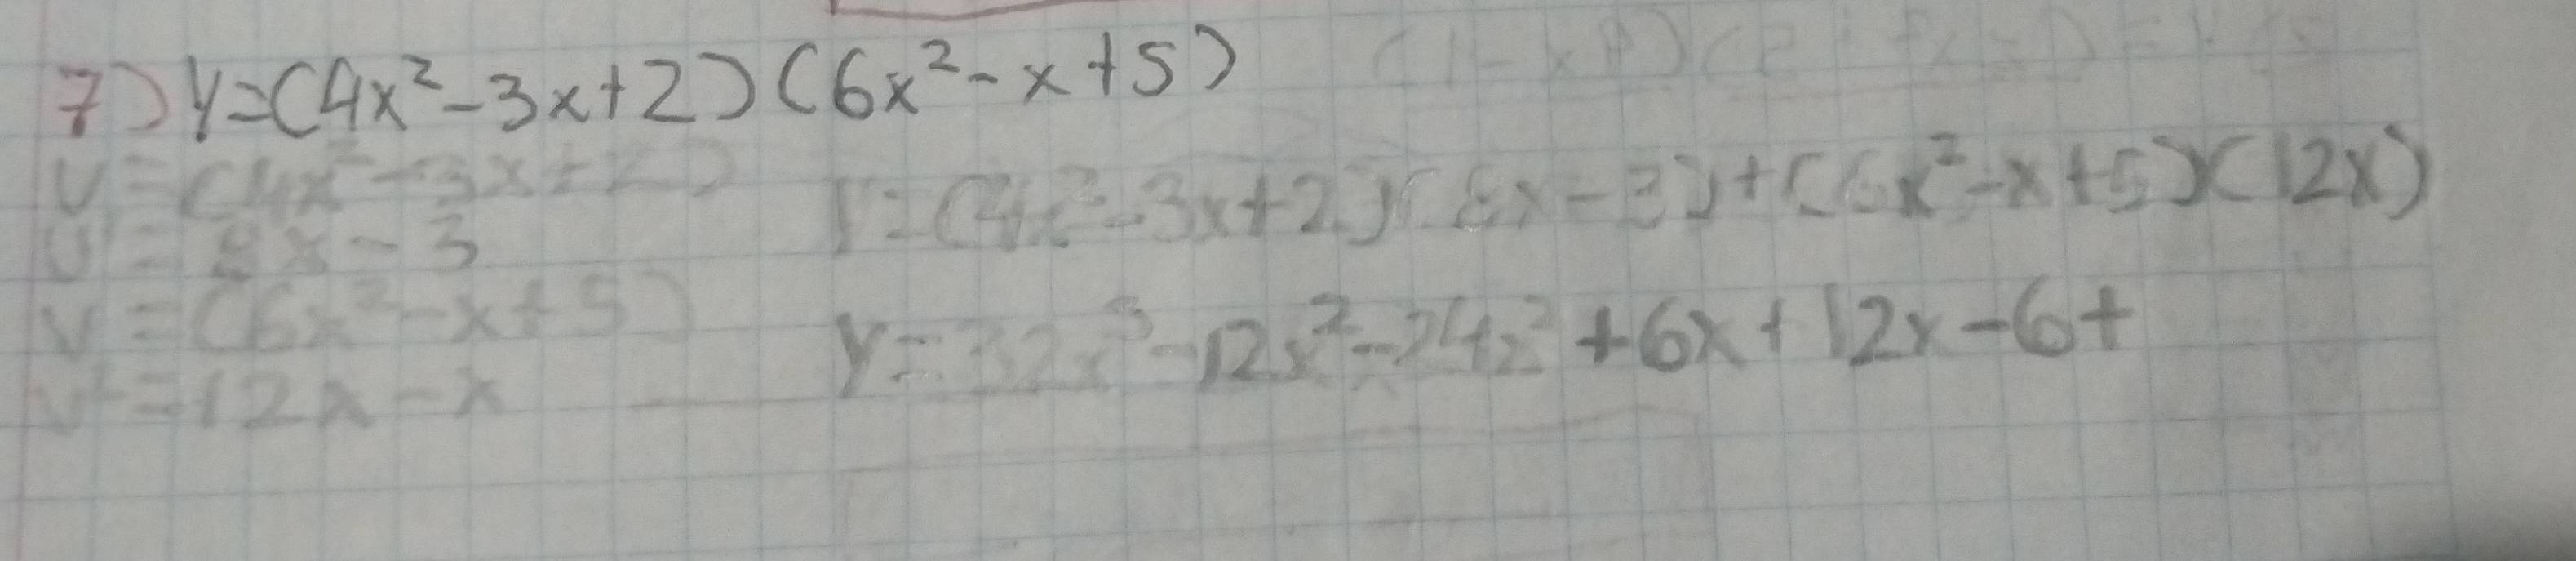 7) y=(4x²-3x+2)(6x²-x+5)
u=(4x²-3x+2)
u'=8x-3
v=(6x²-x+5)
v'=12x-x
y=(4x²-3x+2)(8x-3)+(6x²-x+5)(12x)
y=32x³-12x²-24x²+6x+12x-6+